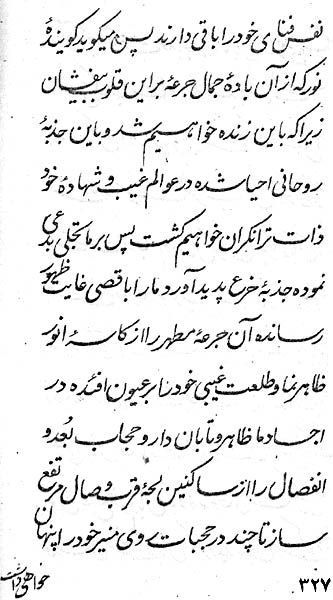 نفس فنای خود را باقی دارند پس میگوید گوینده
نور که از آن بادهٔ جمال جرعهٔ بر این قلوب بیفشان
زیرا که باین زنده خواهیم شد و باین جذبهٔ
روحانی احیا شده در عوالم غیب و شهادهٔ خود
ذات ترا نگران خواهیم گشت پس بر ما تجلی بدعی
نموده جذبهٔ پدید آور و ما را با قصی غایت ظهور
رسانده آن جرعهٔ مطهر را از کاسهٔ انور
ظاهر نما و طلعت غیبی خود را بر عیون افئده در
اجساد ما ظاهر و تابان دار و حجاب بُعد و
انفصال را از ساکنین لجهٔ قرب و وصال مرتفع
ساز تا چند در حجبات روی منیر خود را پنهان
خواهی داشت
۳۲۷